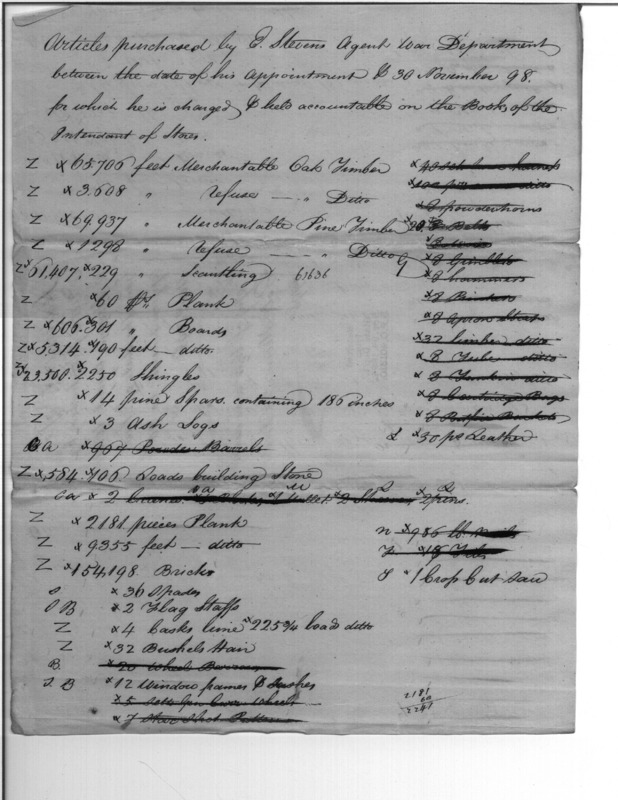 Articles purchased by E. Stevens Agent War Department
between the date of his appointment & 30 November 98.
for which he is charged, & held accountable on the Books of the
Intendant of Stores.
Z x 65.706 feet Merchantable Oak Timber
Z x 3.608 " refuse — " Ditto
Z x 69,937 " Merchantable Pine Timber
Z x 1298 " refuse — " Ditto
Z x 61,407. x 229 " Scantling 61636
Z x 60 Plank
Z x 606. x 301 " Boards
Z x 5,314. x 190 feet — ditto
Z x 23,500. x 2250 Shingles
Z x 14 pine Spars. containing 186 inches
Z x 3 Ash Logs
Ca x 967 Powder Barrels
Z x 584. x 106 Loads building Stone
Ca x 2
Z x 2181 pieces Plank
Z x 9355 feet — ditto
Z x 154,198. Bricks
S x 36 Spades
S B x 2 Flag Staffs
Z x 4 casks lime x 225¾ loads ditto
Z x 32 Bushels Hair
B. x 20 Wheel Barrows
S B x 12 Window frames & Sashes
x 5
x 7
x 8 powderhorns
x 8 Gimblets
x 8 hammers
x 8 Apron
x 32 ditto
x 8 Tube ditto
x 8 ditto
x 8 Bags
x 8 Buckets
L x 30 ps Leather
n x 986 lb. Nails
x 18
S x 1 Crop Cut Saw
2181
60
2241